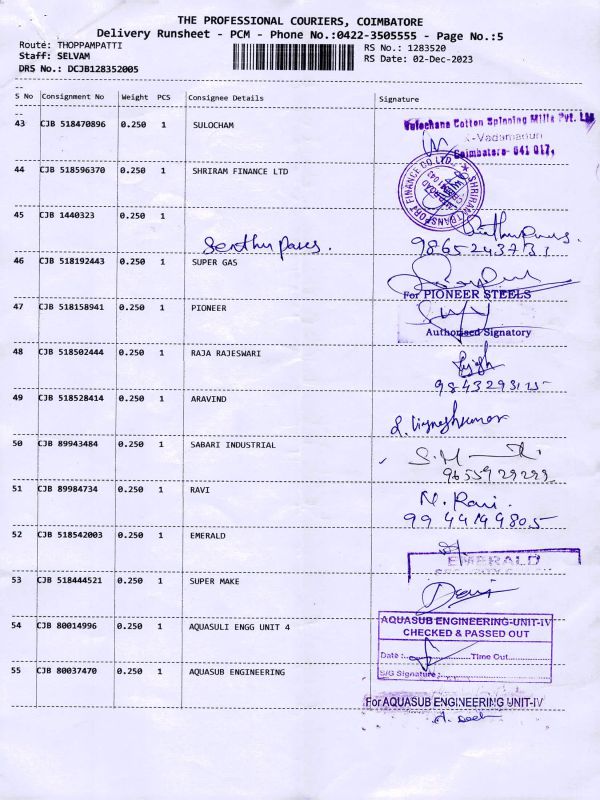 THE PROFESSIONAL COURIERS, COIMBATORE
Delivery Runsheet - PCM - Phone No.:0422-3505555 - Page No.:5
Route: THOPPAMPATTI
RS No.: 1283520
Staff: SELVAM
RS Date: 02-Dec-2023
DRS No.: DCJB128352005
S No Consignment No Weight PCS Consignee Details Signature
43 CJB 518470896 0.250 1 SULOCHAM
Sulochana Cotton Spinning Mills Pvt. Ltd
Coimbatore- 641 017.
44 CJB 518596370 0.250 1 SHRIRAM FINANCE LTD
SHRIRAM TRANSPORT FINANCE CO LTD
45 CJB 1440323 0.250 1
9865243731
46 CJB 518192443 0.250 1 SUPER GAS
For PIONEER STEELS
47 CJB 518158941 0.250 1 PIONEER
Authorised Signatory
48 CJB 518502444 0.250 1 RAJA RAJESWARI
49 CJB 518528414 0.250 1 ARAVIND
50 CJB 89943484 0.250 1 SABARI INDUSTRIAL
9655929299
51 CJB 89984734 0.250 1 RAVI
M. Ravi.
9944194805
52 CJB 518542003 0.250 1 EMERALD
EMERALD
53 CJB 518444521 0.250 1 SUPER MAKE
54 CJB 80014996 0.250 1 AQUASULI ENGG UNIT 4
AQUASUB ENGINEERING-UNIT-IV
CHECKED & PASSED OUT
Date: Time Out
S/G Signature:
55 CJB 80037470 0.250 1 AQUASUB ENGINEERING
For AQUASUB ENGINEERING UNIT-IV